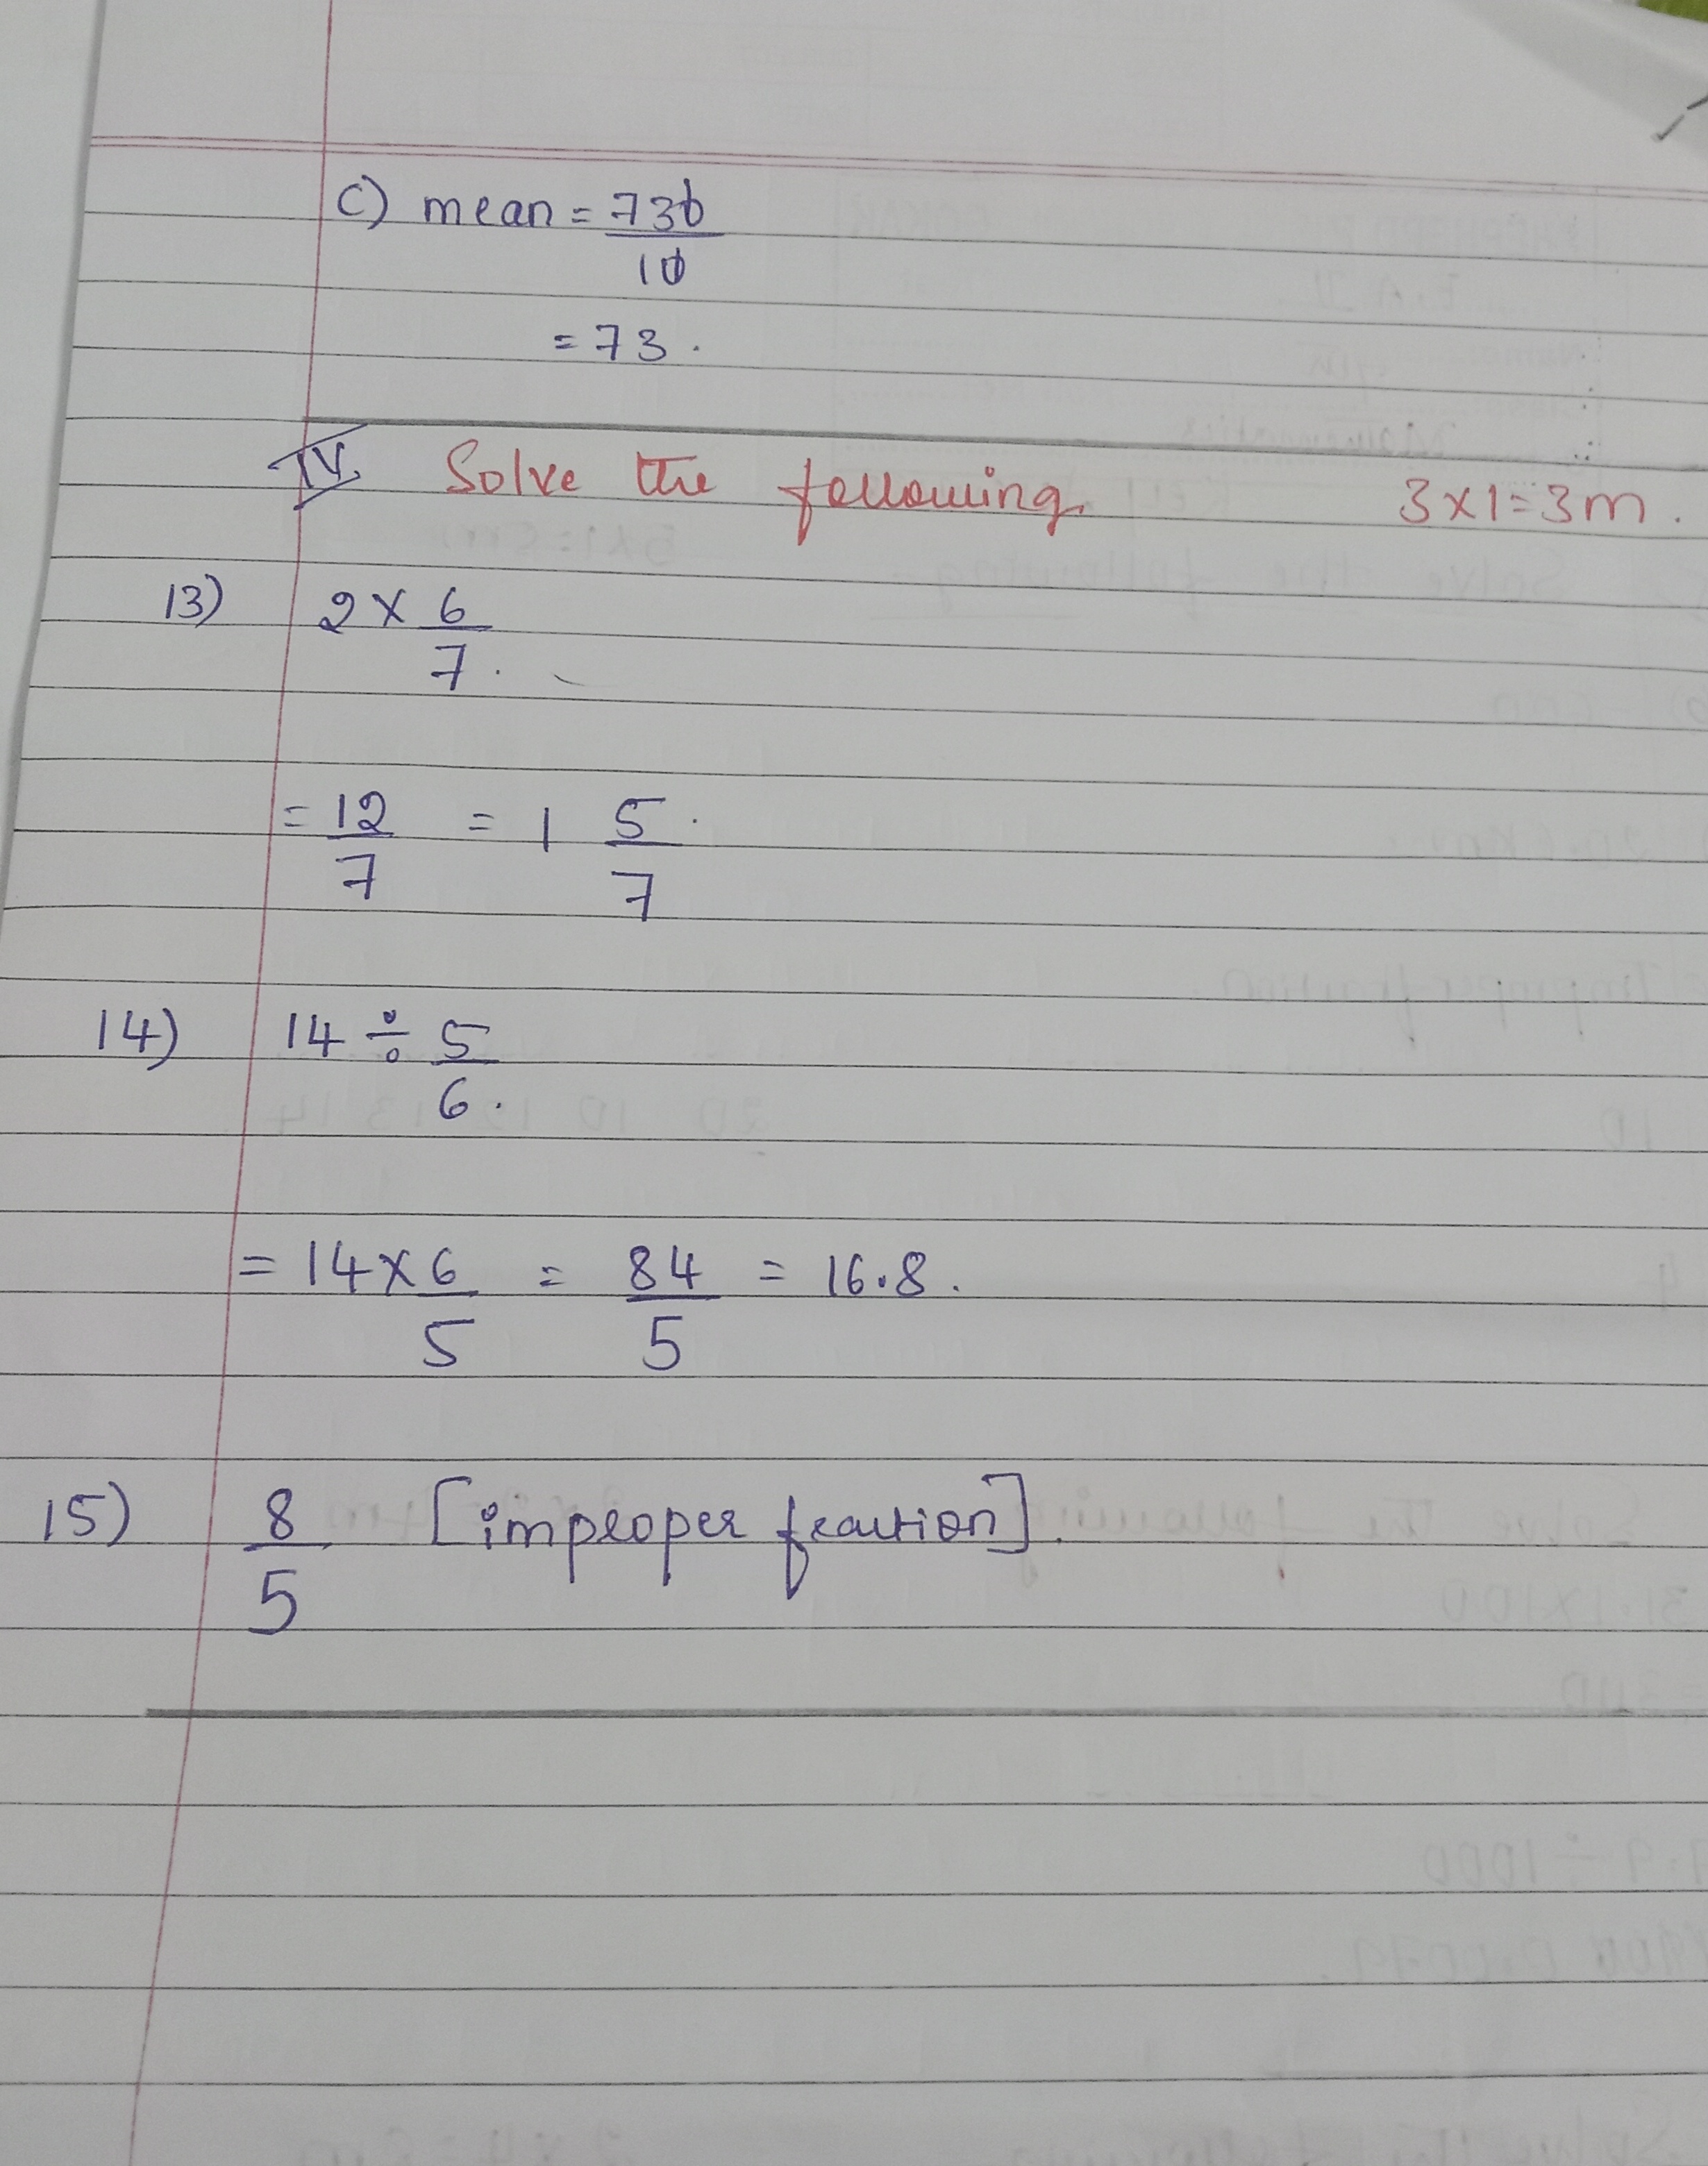 c) mean = 730
10
= 73.
IV. Solve the following. 3x1=3m.
13) 2 x 6
7.
= 12 = 1 5.
7 7
14) 14 ÷ 5
6.
= 14 x 6 = 84 = 16.8.
5 5
15) 8 [improper fraction].
5